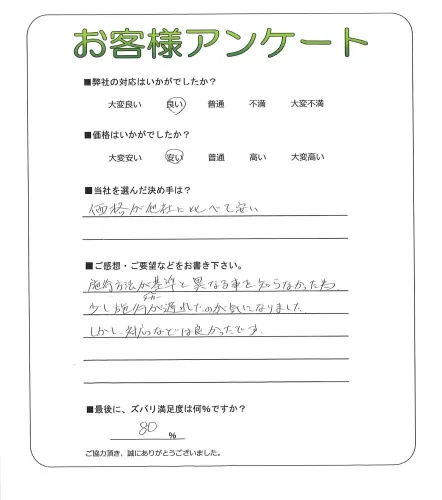 お客様アンケート
■弊社の対応はいかがでしたか？
大変良い 良い 普通 不満 大変不満
■価格はいかがでしたか？
大変安い 安い 普通 高い 大変高い
■当社を選んだ決め手は？
価格が他社に比べて安い
■ご感想・ご要望などをお書き下さい。
施行方法が基準と異なる事を知らなかった為
少し施行が遅れたのが気になりました
しかし、対応などは良かったです。
■最後に、ズバリ満足度は何％ですか？
80 ％
ご協力頂き、誠にありがとうございました。